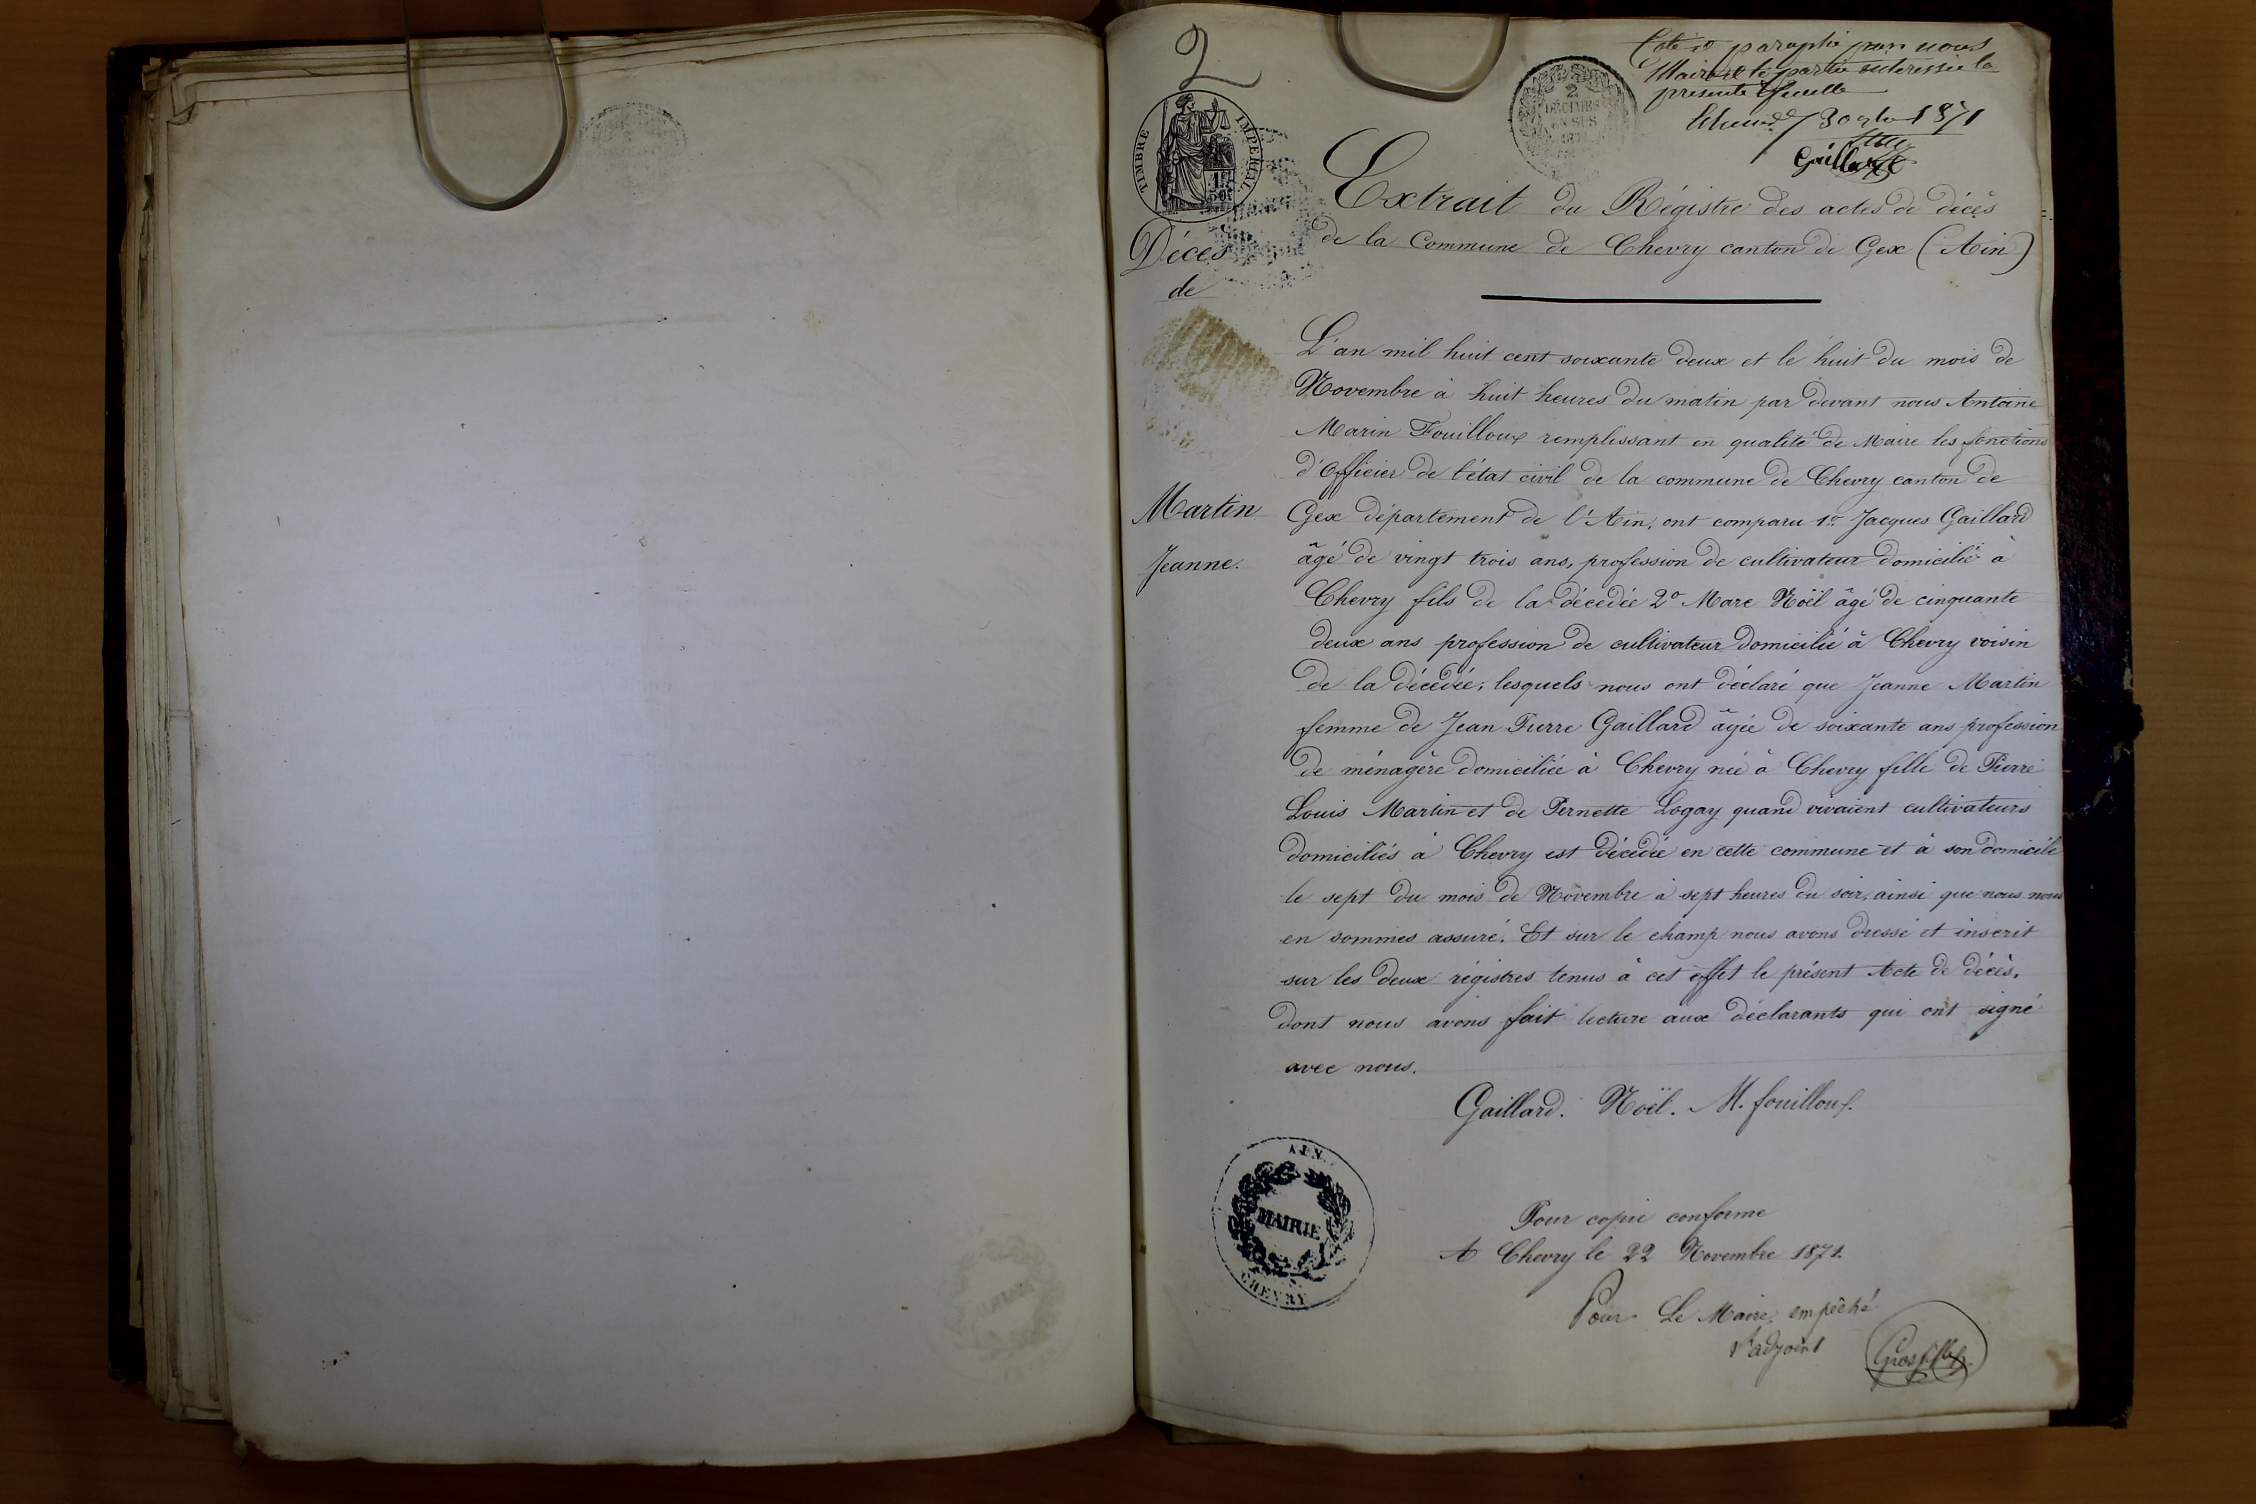 2
Coté et paraphé par nous
Maire et la partie intéressée la
presente feuille
30 9bre 1871
Gaillard
TIMBRE IMPERIAL
1F
50C
2
DÉCIMES
EN SUS
Extrait du Régistre des actes de décès
de la Commune de Chevry canton de Gex (Ain)
Décès
de
Martin
Jeanne.
L'an mil huit cent soixante deux et le huit du mois de
Novembre à huit heures du matin par devant nous Antoine
Marin Fouilloux remplissant en qualité de Maire les fonctions
d'Officier de l'état civil de la commune de Chevry canton de
Gex département de l'Ain, ont comparu 1o. Jacques Gaillard
âgé de vingt trois ans, profession de cultivateur domicilié à
Chevry fils de la décédée 2o Marc Noël âgé de cinquante
deux ans profession de cultivateur domicilié à Chevry voisin
de la décédée, lesquels nous ont déclaré que Jeanne Martin
femme de Jean Pierre Gaillard âgée de soixante ans profession
de ménagère domiciliée à Chevry née à Chevry fille de Pierre
Louis Martin et de Pernette Logay quand vivaient cultivateurs
domiciliés à Chevry est décédée en cette commune et à son domicile
le sept du mois de Novembre à sept heures du soir, ainsi que nous nous
en sommes assuré. Et sur le champ nous avons dressé et inscrit
sur les deux régistres tenus à cet effet le présent Acte de décès,
dont nous avons fait lecture aux déclarants qui ont signé
avec nous.
Gaillard. Noël. M. fouilloux.
AIN
MAIRIE
CHEVRY
Pour copie conforme
A Chevry le 22 Novembre 1871.
Pour Le Maire, empêché
l'adjoint
Grosfilley